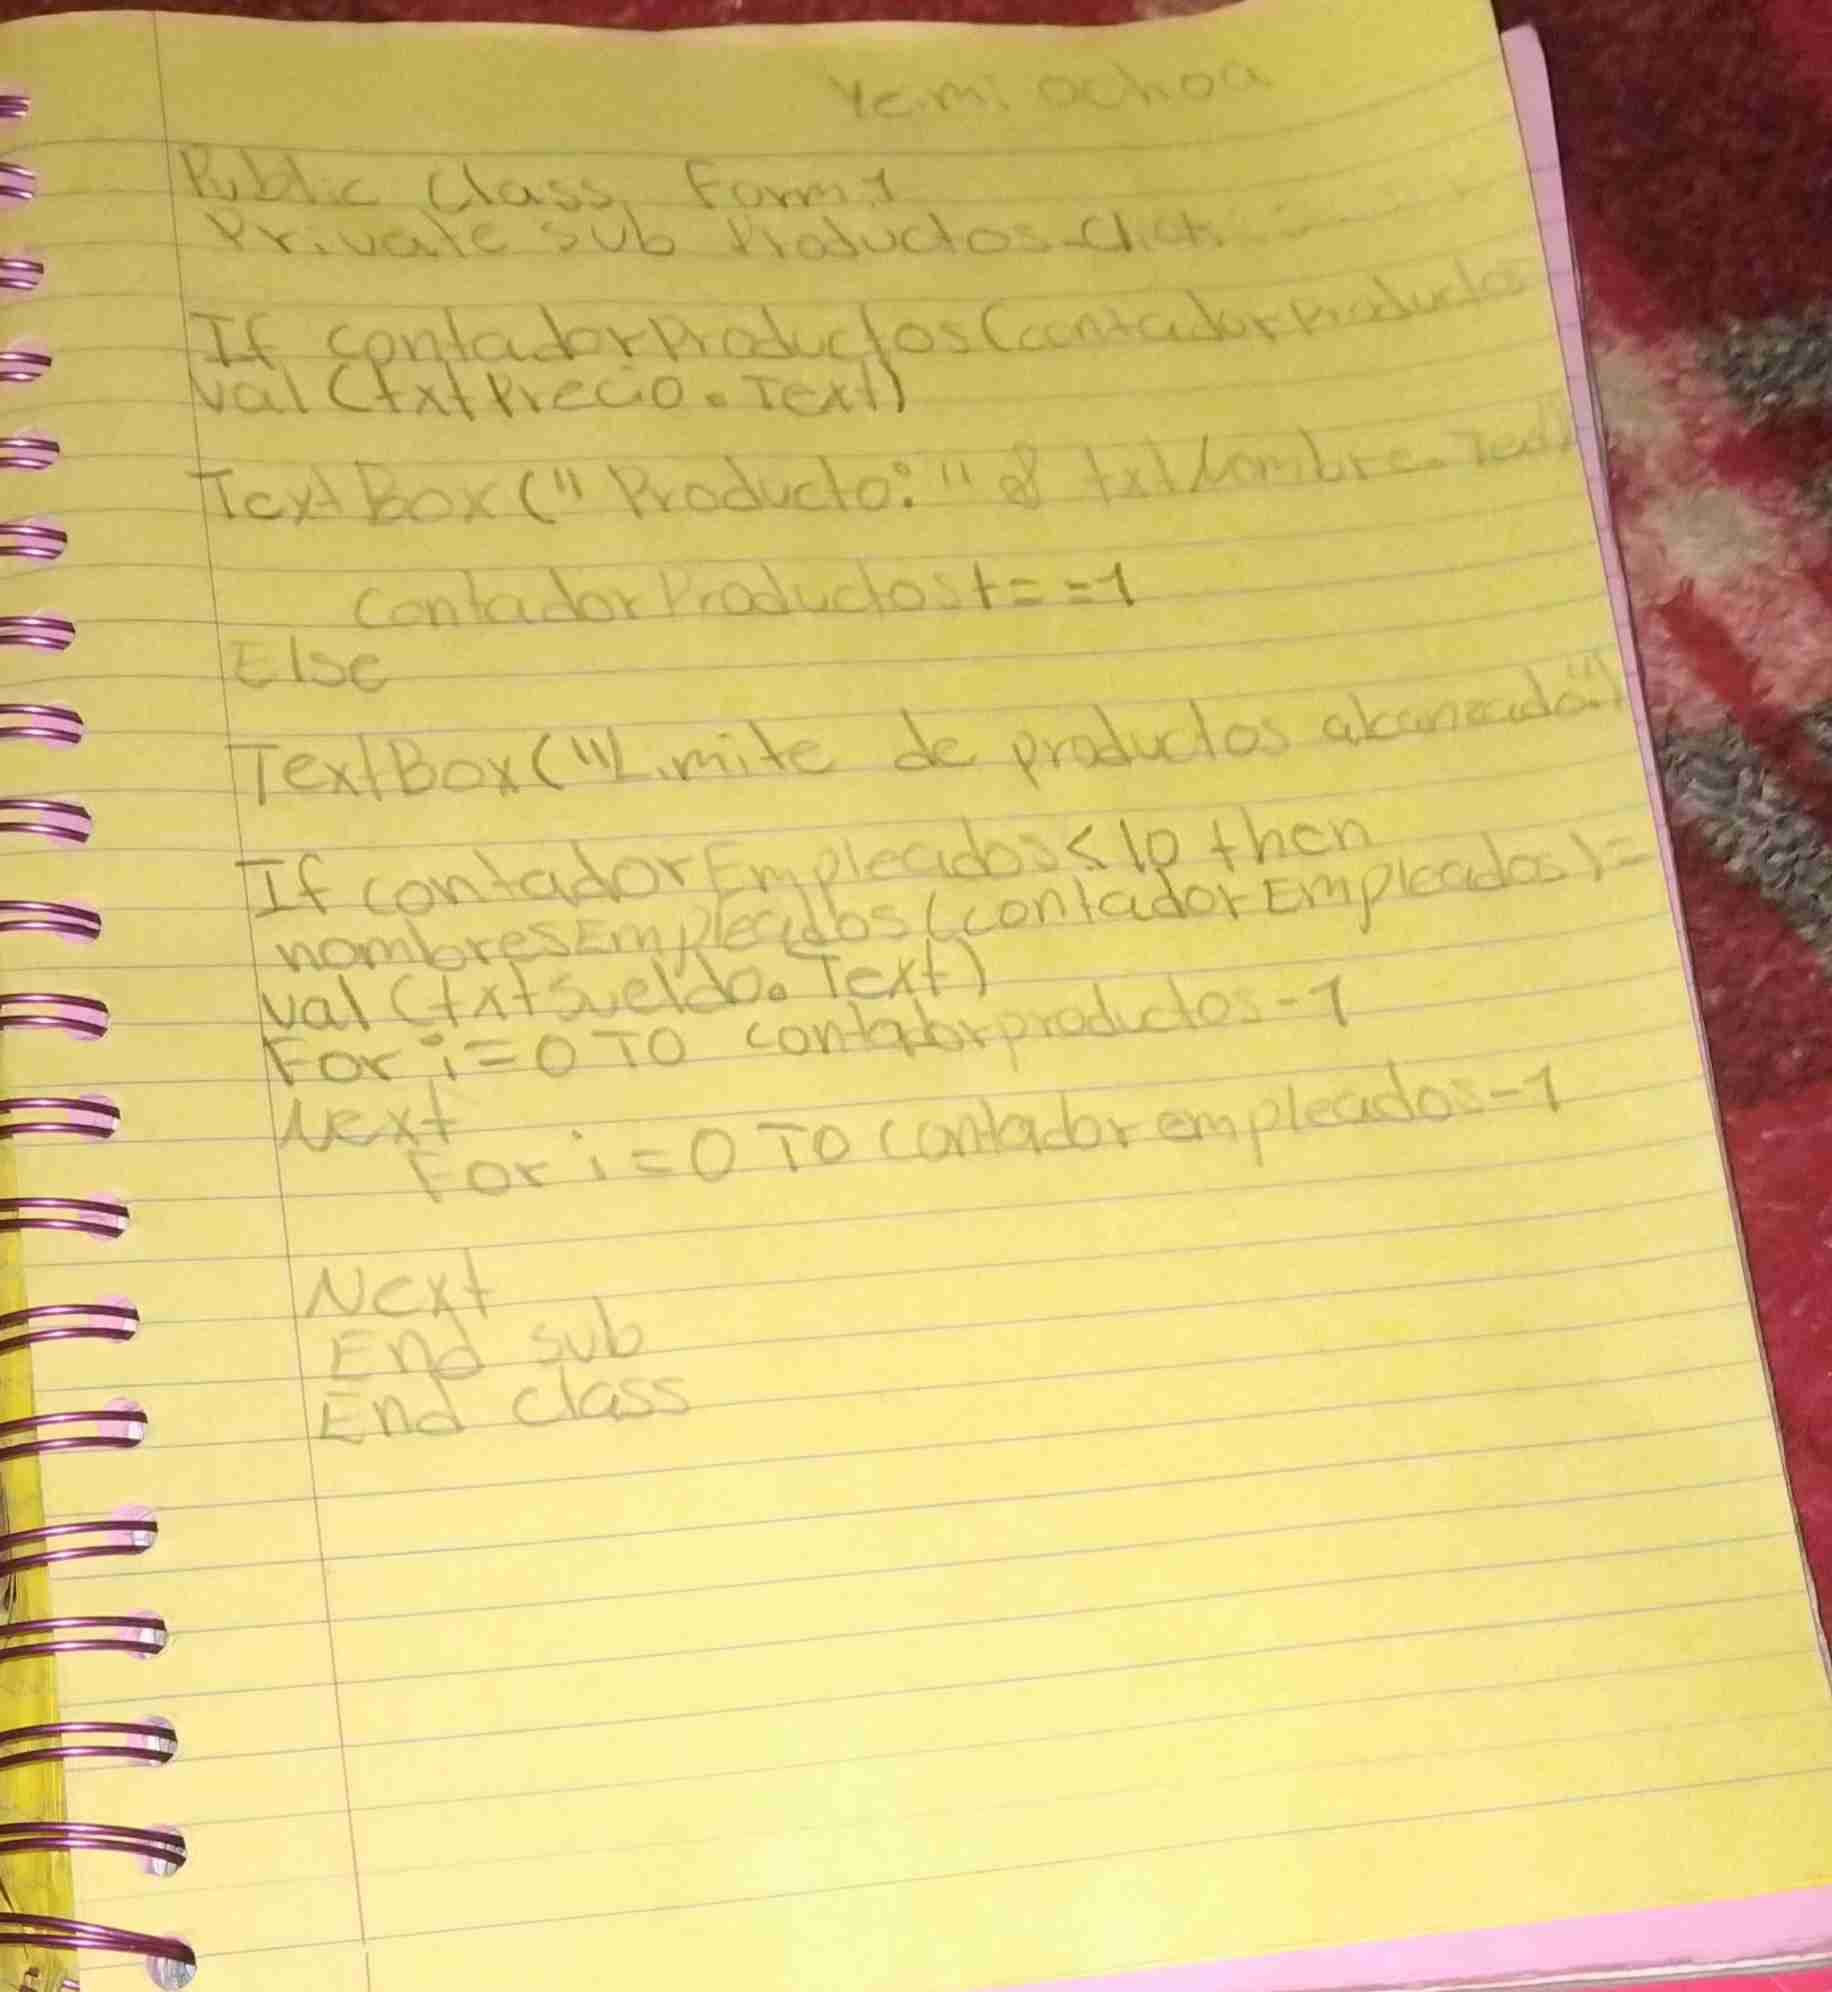 Yemi ochoa
Public Class Form1
Private sub Productos-Click
If contadorProductos(contadorProductos
val(txtPrecio.Text)
TextBox("Producto:" & txtNombre.Text)
contadorProductos+= =1
Else
TextBox("Limite de productos alcanzado")
If contadorEmpleados<10 then
nombresEmpleados(contadorEmpleados)=
val(txtSueldo.Text)
For i=0 TO contadorproductos-1
Next
For i=0 TO contadorempleados-1
Next
End sub
End class